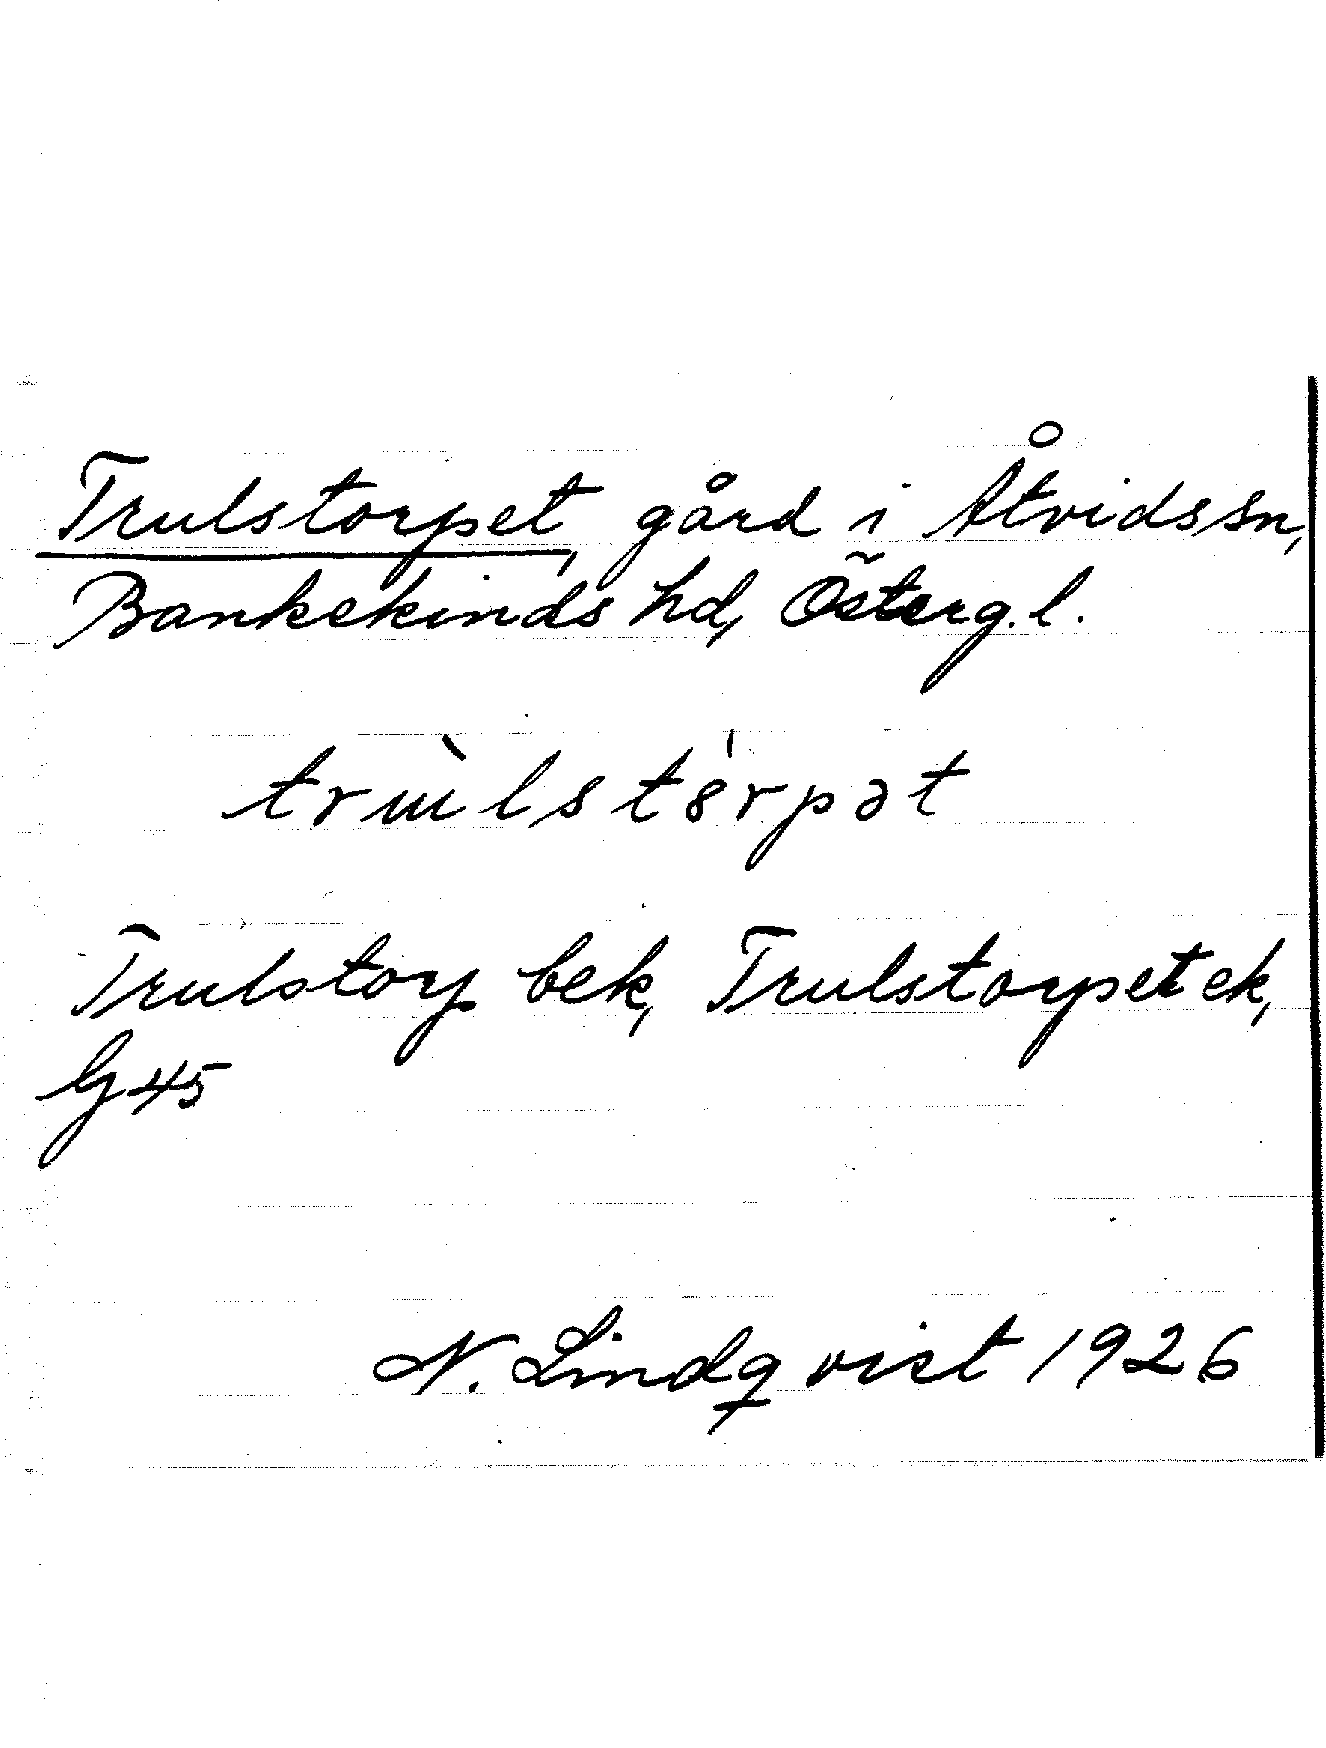 Trulstorpet, gård i Åtvids sn,
Bankekinds hd, Österg.l.
trɯ̀lst8̍rpət
Trulstorp bek, Trulstorpet ek,
G45
N. Lindqvist 1926